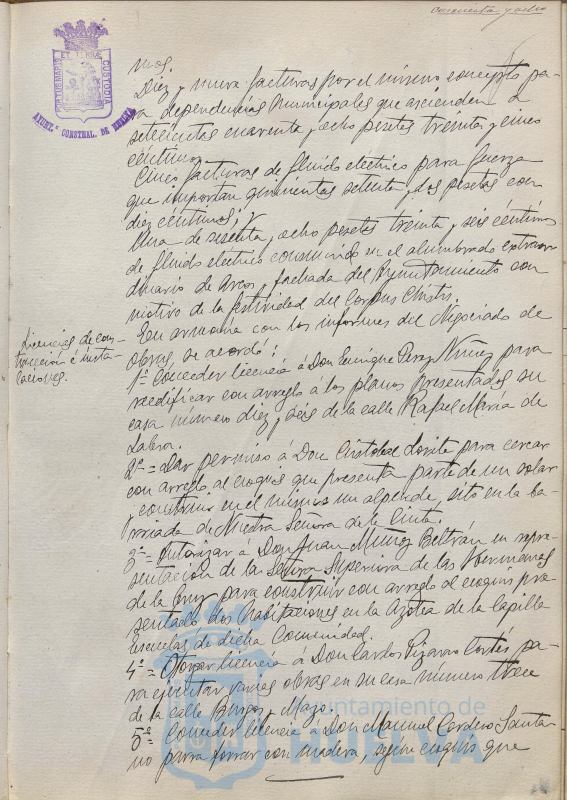 cincuenta y ocho
mos.
Diez y nueve facturas por el mismo concepto pa-
ra dependencias Municipales que ascienden a
setecientas cuarenta y ocho pesetas treinta y cinco
céntimos.
Cinco facturas de fluido eléctrico para fuerza
que importan quinientas setenta y dos pesetas con
diez céntimos; y
Una de sesenta y ocho pesetas treinta y seis céntimos
de fluido electrico consumido en el alumbrado extraor-
dinario de Arcos y fachada del Ayuntamiento con
motivo de la festividad del Corpus Christi.
Licencias de cons-
trucción é insta-
laciones.
En armonia con los informes del Negociado de
Obras, se acordó:
1º = Conceder licencia á Don Enrique Perez Núñez para
reedificar con arreglo á los planos presentados su
casa número diez y seis de la calle Rafael María de
Labra.
2º = Dar permiso á Don Cristobal para cercar
con arreglo al croquis que presenta parte de un solar
y construir en el mismo un alpende, sito en la ba-
rriada de Nuestra Señora de la Cinta.
3º = Autorizar á Don Juan Muñoz Beltrán en repre-
sentación de la Señora Superiora de las Hermanas
de la Cruz para construir con arreglo al croquis pre-
sentado dos habitaciones en la azotea de la Capilla
Escuelas de dicha Comunidad.
4º = Otorgar licencia á Don Carlos Pizarro Cortés pa-
ra ejecutar varias obras en su casa número trece
de la calle Burgos y Mazo.
5º = Conceder licencia á Don Manuel Cordero Santa-
no para forrar con madera, según croquis que
AYUNT.º CONSTNAL. DE HUELVA
PORTUS MARIS ET TERRÆ CUSTODIA
Ayuntamiento de
HUELVA